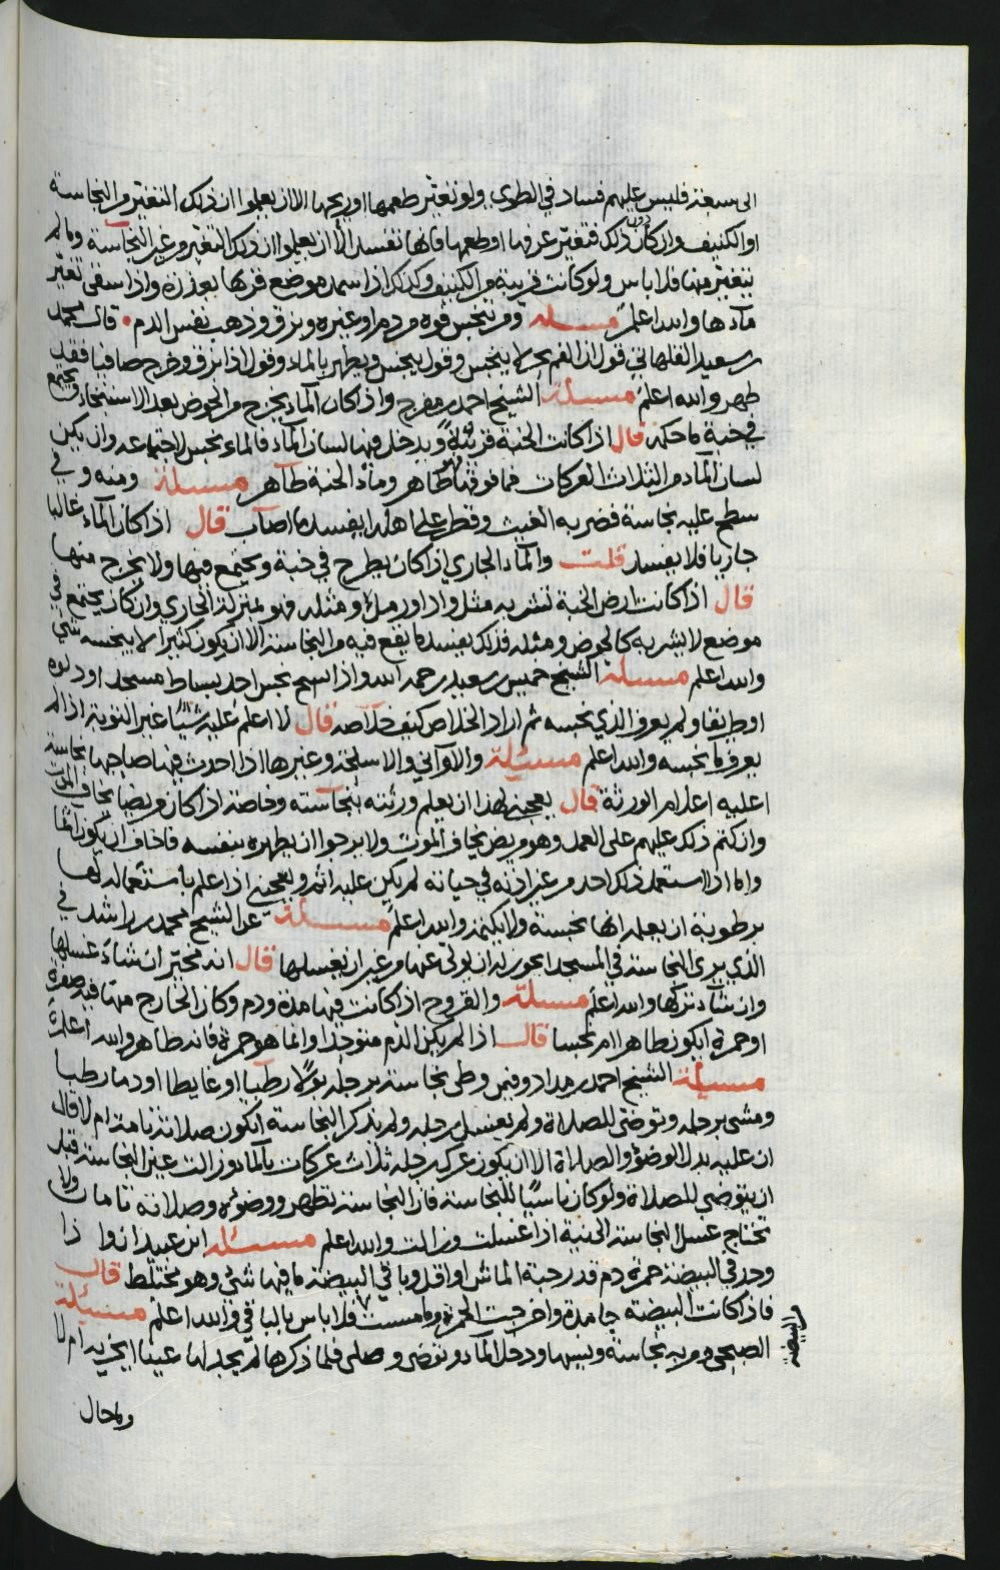 الى سبعة فليس عليهم فساد في الطوي ولو تغير طعمها او ريحها الا ان يعلموا ان ذلك التغير من النجاسة
او الكنيف وان كان دون ذلك فتغير عرفها او طعمها فانها تفسد الا ان يعلموا ان ذلك التغير من غير النجاسة وما لم
يتغير منها فلا باس ولو كانت قريبة من الكنيف وكذلك اذا سمد موضع قربها بعذرة واذا سقي تغير
مآءها والله اعلم مسئله ومن تنجس فوه من دم او غيره وبزق وذهب نفس الدم قال محمد
بن سعيد القلهاتي قول ان الفم بحر لا ينجس وقول ينجس ويطهر بالماء وقول اذا بزق وخرج صافيا فقد
طهر والله اعلم مسئلة الشيخ احمد بن مفرج واذا كان المآء يخرج من الحوض بعد الاستنجاء ويجتمع
في خبة ما حكمه قال اذا كانت الخبة قريبة ويدخل فيها لسان المآء فالماء نجس لاجتماعه وان يكن
لسان المآء من الثلاث العركات فما فوقها طاهر ومآء الخبة طاهر مسئلة ومنه وفي
سطح عليه نجاسة فضربه الغيث وقطر على اهله ايفسد ما اصآب قال اذا كان المآء غالبا
جاريا فلا يفسد قلت والمآء الجاري اذا كان يطرح في خبة ويجتمع فيها ولا يخرج منها
قال اذا كانت ارض الخبة تشربه مثل واد او رمل او مثله فهو بمنزلة الجاري وان كان يجتمع في
موضع لا يشربه كالحوض ومثله فذلك يفسده ما يقع فيه من النجاسة الا ان يكون كثيرا لا ينجسه شي
والله اعلم مسئله الشيخ خميس بن سعيد رحمه الله واذا نجس احد بساط مسجد او دلوه
او طريقا ولم يعرف الذي نجسه ثم اراد الخلاص كيف خلاصه قال لا اعلم عليه شيئا غير التوبة اذا لم
يعرف ما نجسه والله اعلم مسئيلة والاوآني والاسلحة وغيرها اذا احدث فيها صاحبها نجاسة
اعليه اعلام الورثة قال يعجبني لهذا ان يعلم ورثته بنجآسته وخاصة اذا كان مريضا يخاف الموت
وان كتم ذلك عليهم على العمد وهو مريض يخاف الموت ولا يرجوا ان يطهره بنفسه فاخاف ان يكون اثما
واما اذا استعمل ذلك احد من غير اذنه في حياته لم يكن عليه اثم ويعجبني اذا علم باستعماله لها
برطوبة ان يعلمه انها نجسة ولا يكتمه والله اعلم مسئلة عن الشيخ محمد بن راشد في
الذي يرى النجاسة في المسجد ايجوز له ان يولي عنها من غير ان يغسلها قال انه مخير ان شآء غسلها
وان شآء تركها والله اعلم مسئلة والقروح اذا كانت فيها مدة ودم وكان الخارج منها فيه صفرة
او حمرة ايكون طاهرا ام نجسا قال اذا لم يكن الدم متوجدا وانما هو حمرة فانه طاهر والله اعلم
مسئلة الشيخ احمد بن مداد وفيمن وطى نجاسة برجله بولا رطبا او غايطا او دما رطبا
ومشى برجله وتوضى للصلاة ولم يغسل رجله ولم يذكر النجاسة اتكون صلاته تامة ام لا قال
ان عليه بدل الوضوء والصلاة الا ان يكون عرك رجله ثلاث عركات بالمآء وزالت عين النجاسة قبل
ان يتوضى للصلاة ولو كان ناسيا للنجاسة فان النجاسة تطهر ووضوءه وصلاته تامان ولا
تحتاج غسل النجاسة الى نية اذا غسلت وزالت والله اعلم مسئله ابن عبيدان واذا
وجد في البيضة حمرة دم قدر حبة الماش او اقل وباقي البيضة ما فيها شي وهو مختلط قال
فاذا كانت البيضه جامدة واخرجت الحمرة وما مست فلا باس بالباقي والله اعلم مسئيلة
الصبحي ومن به نجاسة ونسيها ودخل المآء وتوضى وصلى فلما ذكرها لم يجد لها عينا ايجزيه ام لا
البيضة
وما حال